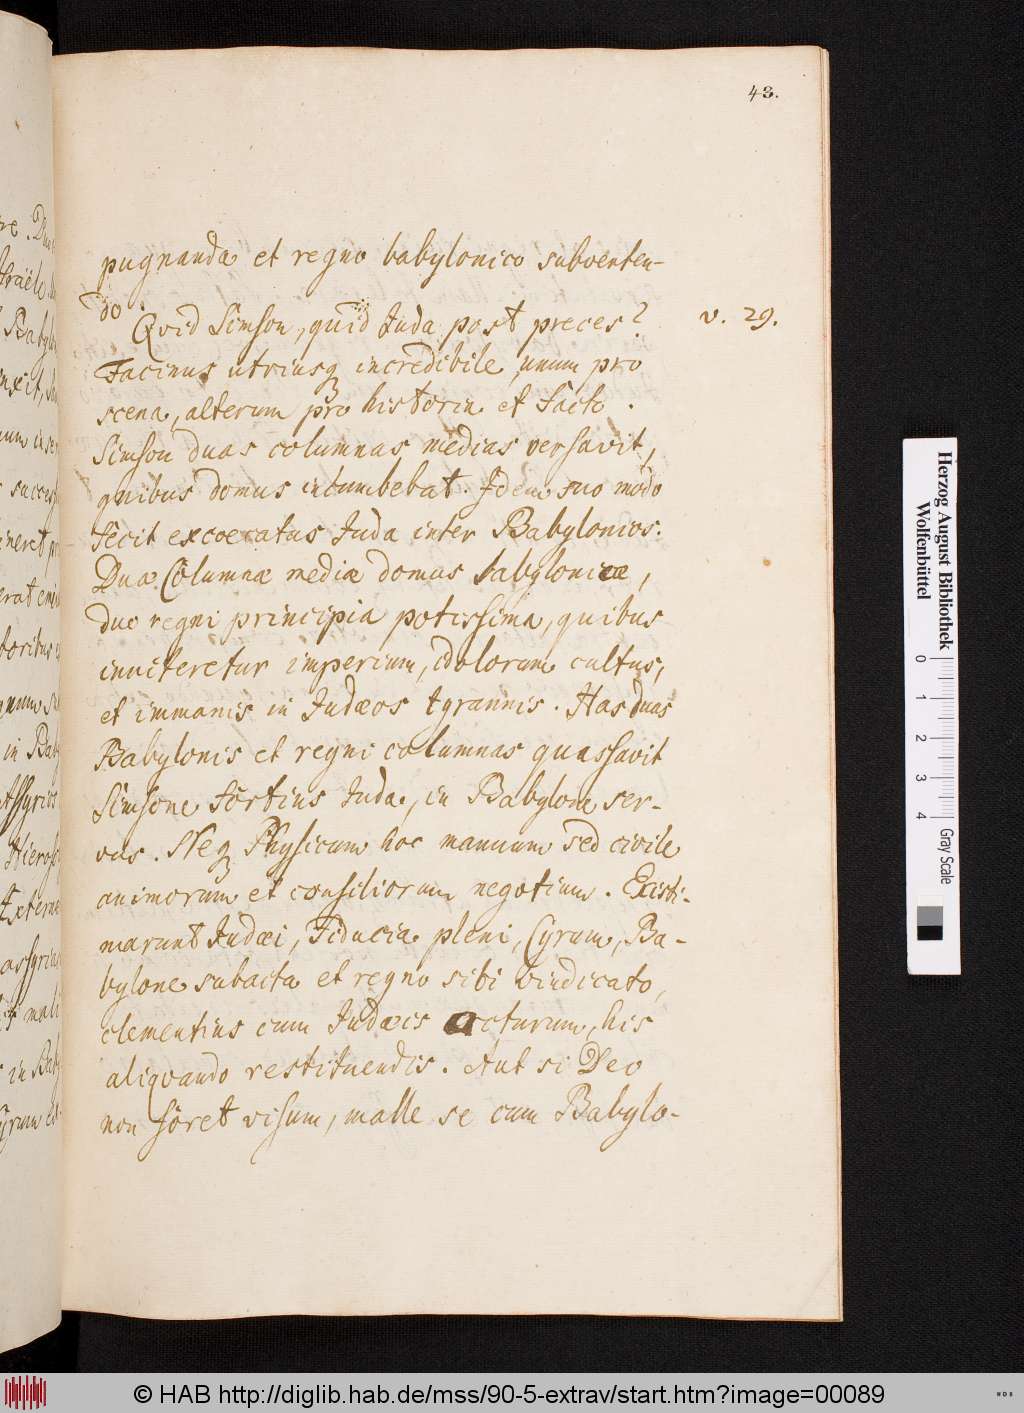 43.
pugnanda et regno babylonico subverten-
do.
Qvid Simson, quid Juda post preces?
v. 29.
Facinus utriusq incredibile, unum pro
scena, alterum pro historia et facto.
Simson duas columnas medias versavit,
quibus domus incumbebat. Idem suo modo
fecit excoecatus Juda inter Babylonios.
Duæ Columnæ mediæ domus babylonicæ,
duo regni principia potissima, quibus
inniteretur imperium, idolorum cultus,
et immanis in Judæos tyrannis. Has duas
Babylonis et regni columnas quassavit
Simsone fortius Juda, in Babylone ser-
vus. Neq Physicum hoc manuum sed civile
animorum et consiliorum negotium. Existi-
marunt Judæi, fiducia pleni, Cyrum, Ba-
bylone subacta et regno sibi vindicato,
clementius cum Judæis acturum, his
aliqvando restituendis. Aut si Deo
non foret visum, malle se cum Babylo-
Herzog August Bibliothek
Wolfenbüttel
0 1 2 3 4
Gray Scale
© HAB http://diglib.hab.de/mss/90-5-extrav/start.htm?image=00089